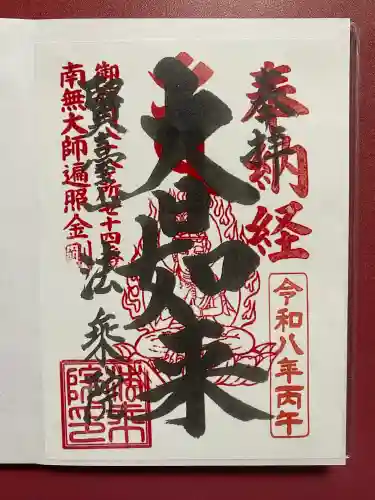 奉納経
令和八年丙午
大日如来
賢臺山 法乗院
御府内八十八ヶ所第七十四番
南無大師遍照金剛